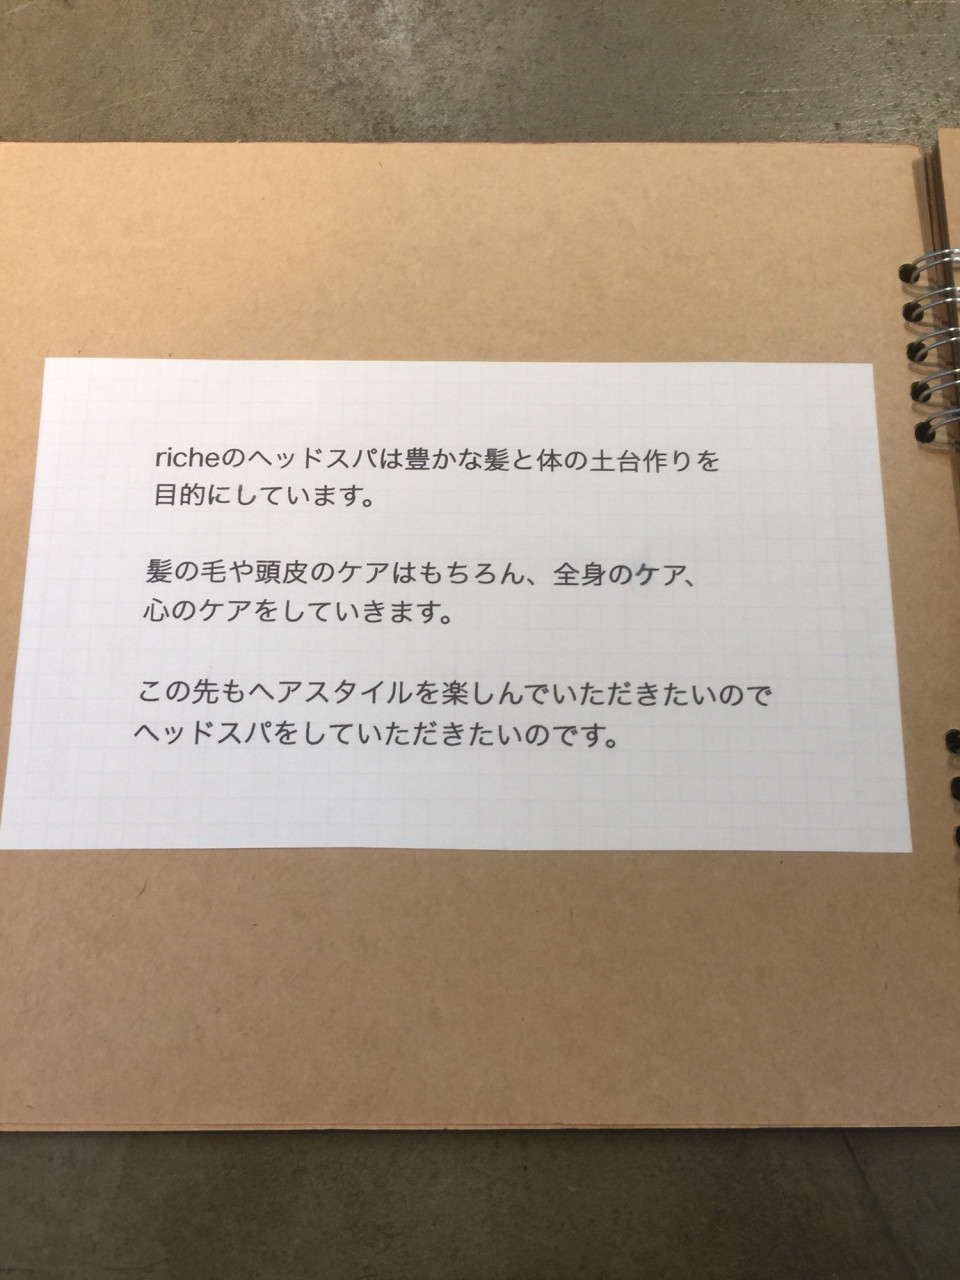 richeのヘッドスパは豊かな髪と体の土台作りを
目的にしています。
髪の毛や頭皮のケアはもちろん、全身のケア、
心のケアをしていきます。
この先もヘアスタイルを楽しんでいただきたいので
ヘッドスパをしていただきたいのです。